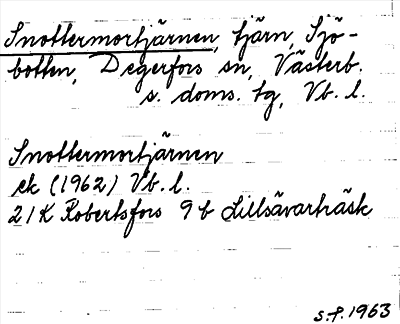 Snottermortjärnen, tjärn, Sjö-
botten, Degerfors sn, Västerb.
s. doms. tg, Vb. l.
Snottermortjärnen
ek (1962) Vb. l.
21K Robertsfors 9b Lillsävarträsk
s.f. 1963